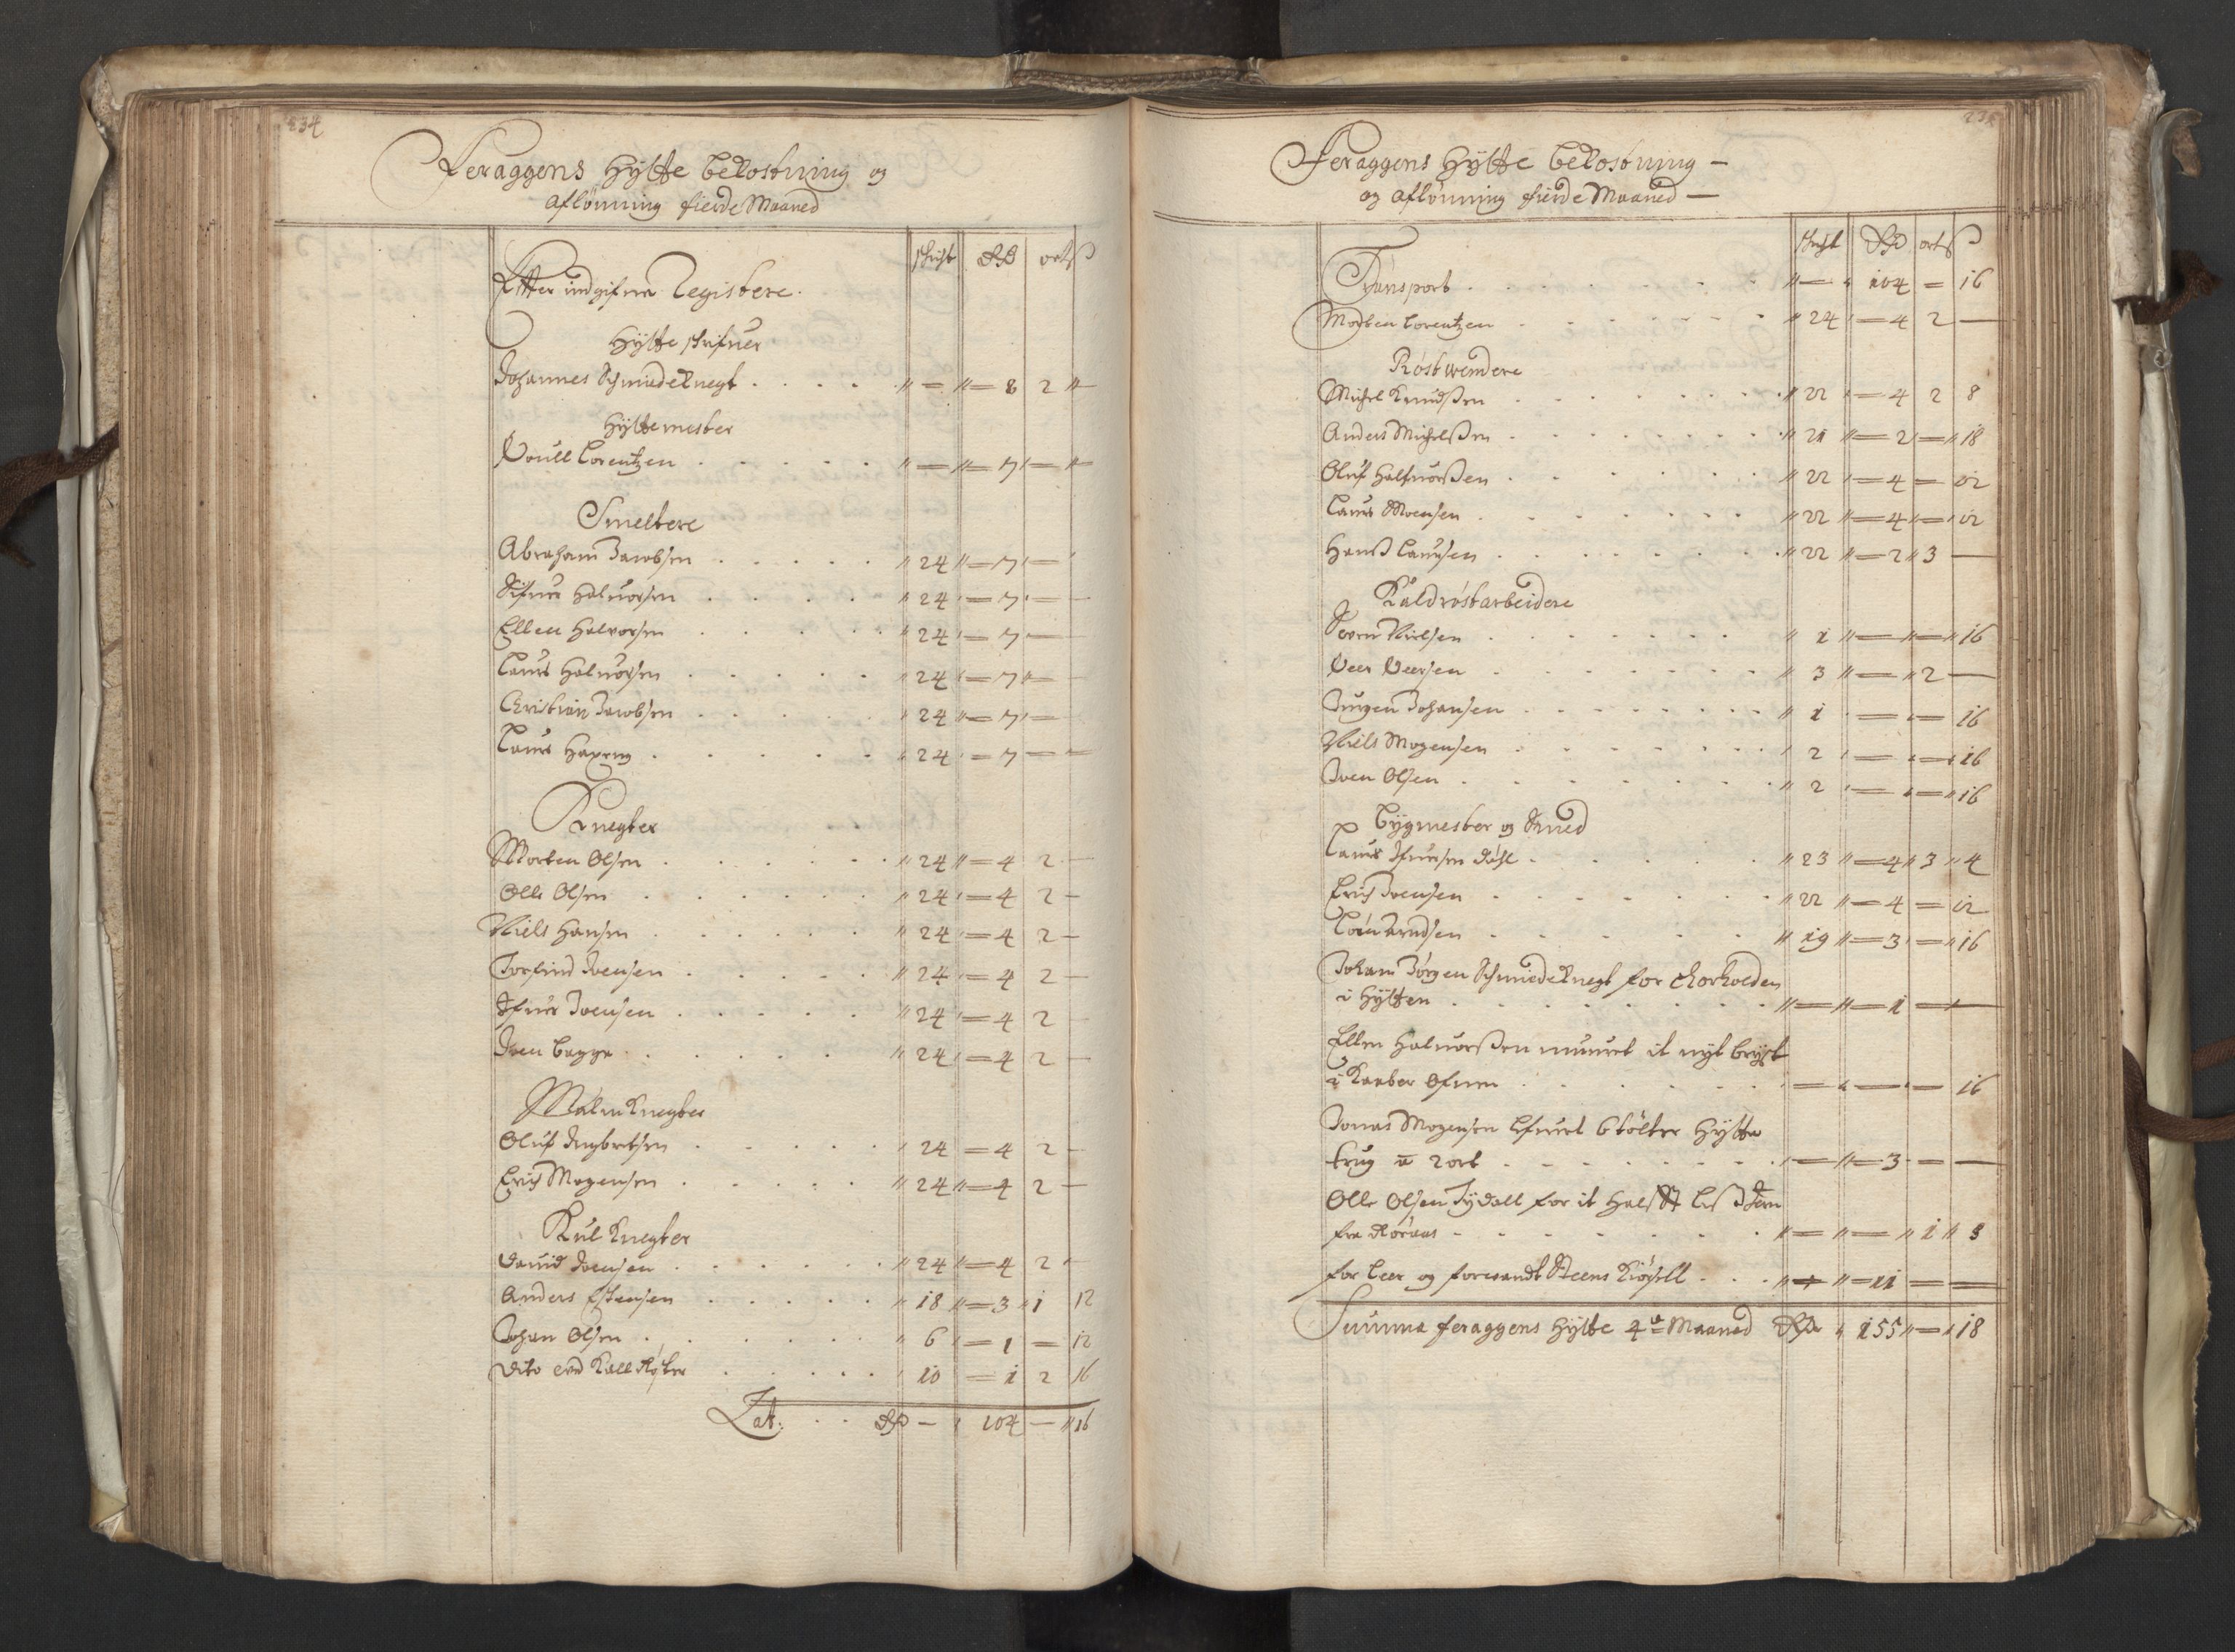 234
Feraggens Hÿtte bekostning og
aflønning fierde Maaned
schicht RD ort ß
Efter indgifne Registere.
Hÿtte schrifuer
Johannes Schmiedeknegt . . . . . " — " — 8 2 " —
Hÿttemester
Poull Lorentzen . . . . . " — " — 7 " — " —
Smeltere
Abraham Jacobsen . . . . . " 24 " — 7 " —
Sifuer Haluorsen . . . . " 24 " — 7 " — —
Ellen Halvorsen . . . . . " 24 " — 7 " —
Laurs Haluorsen . . . . . " 24 " — 7 " —
Christian Jacobsen . . . . . " 24 " — 7 " —
Laurs . . . . . " 24 " — 7 — —
Knegter
Morten Olsen . . . . . . " 24 " — 4 2 —
Olle Olsen . . . . . . " 24 " — 4 2 —
Niels Hansen . . . . . . " 24 " — 4 2 —
Torfind Joensen . . . . . " 24 " — 4 2 —
Ifuer Joensen . . . . . " 24 " — 4 2 —
Joen Bagge . . . . . " 24 " — 4 2 —
Malm Knegter
Oluf Ingbretsen . . . . . " 24 — 4 2 —
Erich Mogensen . . . . . " 24 " — 4 2 —
Kul Knegter
Dauid Joensen . . . . . . " 24 " — 4 2 "
Anders Estensen . . . . . " 18 " — 3 " 1 12
Johan Olsen . . . . . . " 6 " — 1 — 12
Dito ved Kald . . . . . " 10 — 1 2 16
Lat: . . RD — " 104 — " 16
235
Feraggens Hÿtte bekostning —
og aflønning fierde Maaned —
schicht RD ort ß
Transport . . . . . . . " — " 104 — 16
Morten Lorentzen . . . . . . . " 24 " — 4 2 —
Røstwendere
Michel Knudßen . . . . . . . " 22 " — 4 2 8
Anders Michelßen . . . . . . . " 21 " — 2 " — " 18
Oluf Halfuorßen . . . . . . " 22 " — 4 — 12
Laurs Moensen . . . . . . . " 22 " — 4 " — " 12
Hanß Laursen . . . . . . . " 22 " — 2 " 3 —
Kaldrøstarbeidere
Soren Nielsen . . . . . . . " 1 " — " — " 16
Peer Peersen . . . . . . . " 3 " — " 2 —
Jurgen Johansen . . . . . . . . " 1 — " — 16
Niels Mogensen . . . . . . . " 2 " — " — " 16
Joen Olsen . . . . . . . " 2 " — " — " 16
Bÿgmester og Smed
Laurs Ifuersen Dahl . . . . . " 23 " — 4 " 3 " 4
Erich Joensen . . . . . . " 22 " — 4 — 12
Arndsen . . . . . " 19 " — 3 " — " 16
Johan Jörgen Schmiedeknegt for
i Hÿtten . . . . . . . " — " — 1 — —
Ellen Haluorßen muuret it nÿt brÿst
i Kaaber Ofnen . . . . . . " — " — " — 16
Jonas Mogensen lefuert 6 tölter Hÿtte
trug a 2 ort . . . . . . . " — " — 3 — —
Olle Olsen Tÿdall for it half Iern
fra Røraas . . . . . . . " — " — " 1 " 8
for Leer og forwandt Steens Kiørsell . . . " — " — 11 — —
Summa feraggens Hÿtte 4de Maaned RD " 155 " — " 18